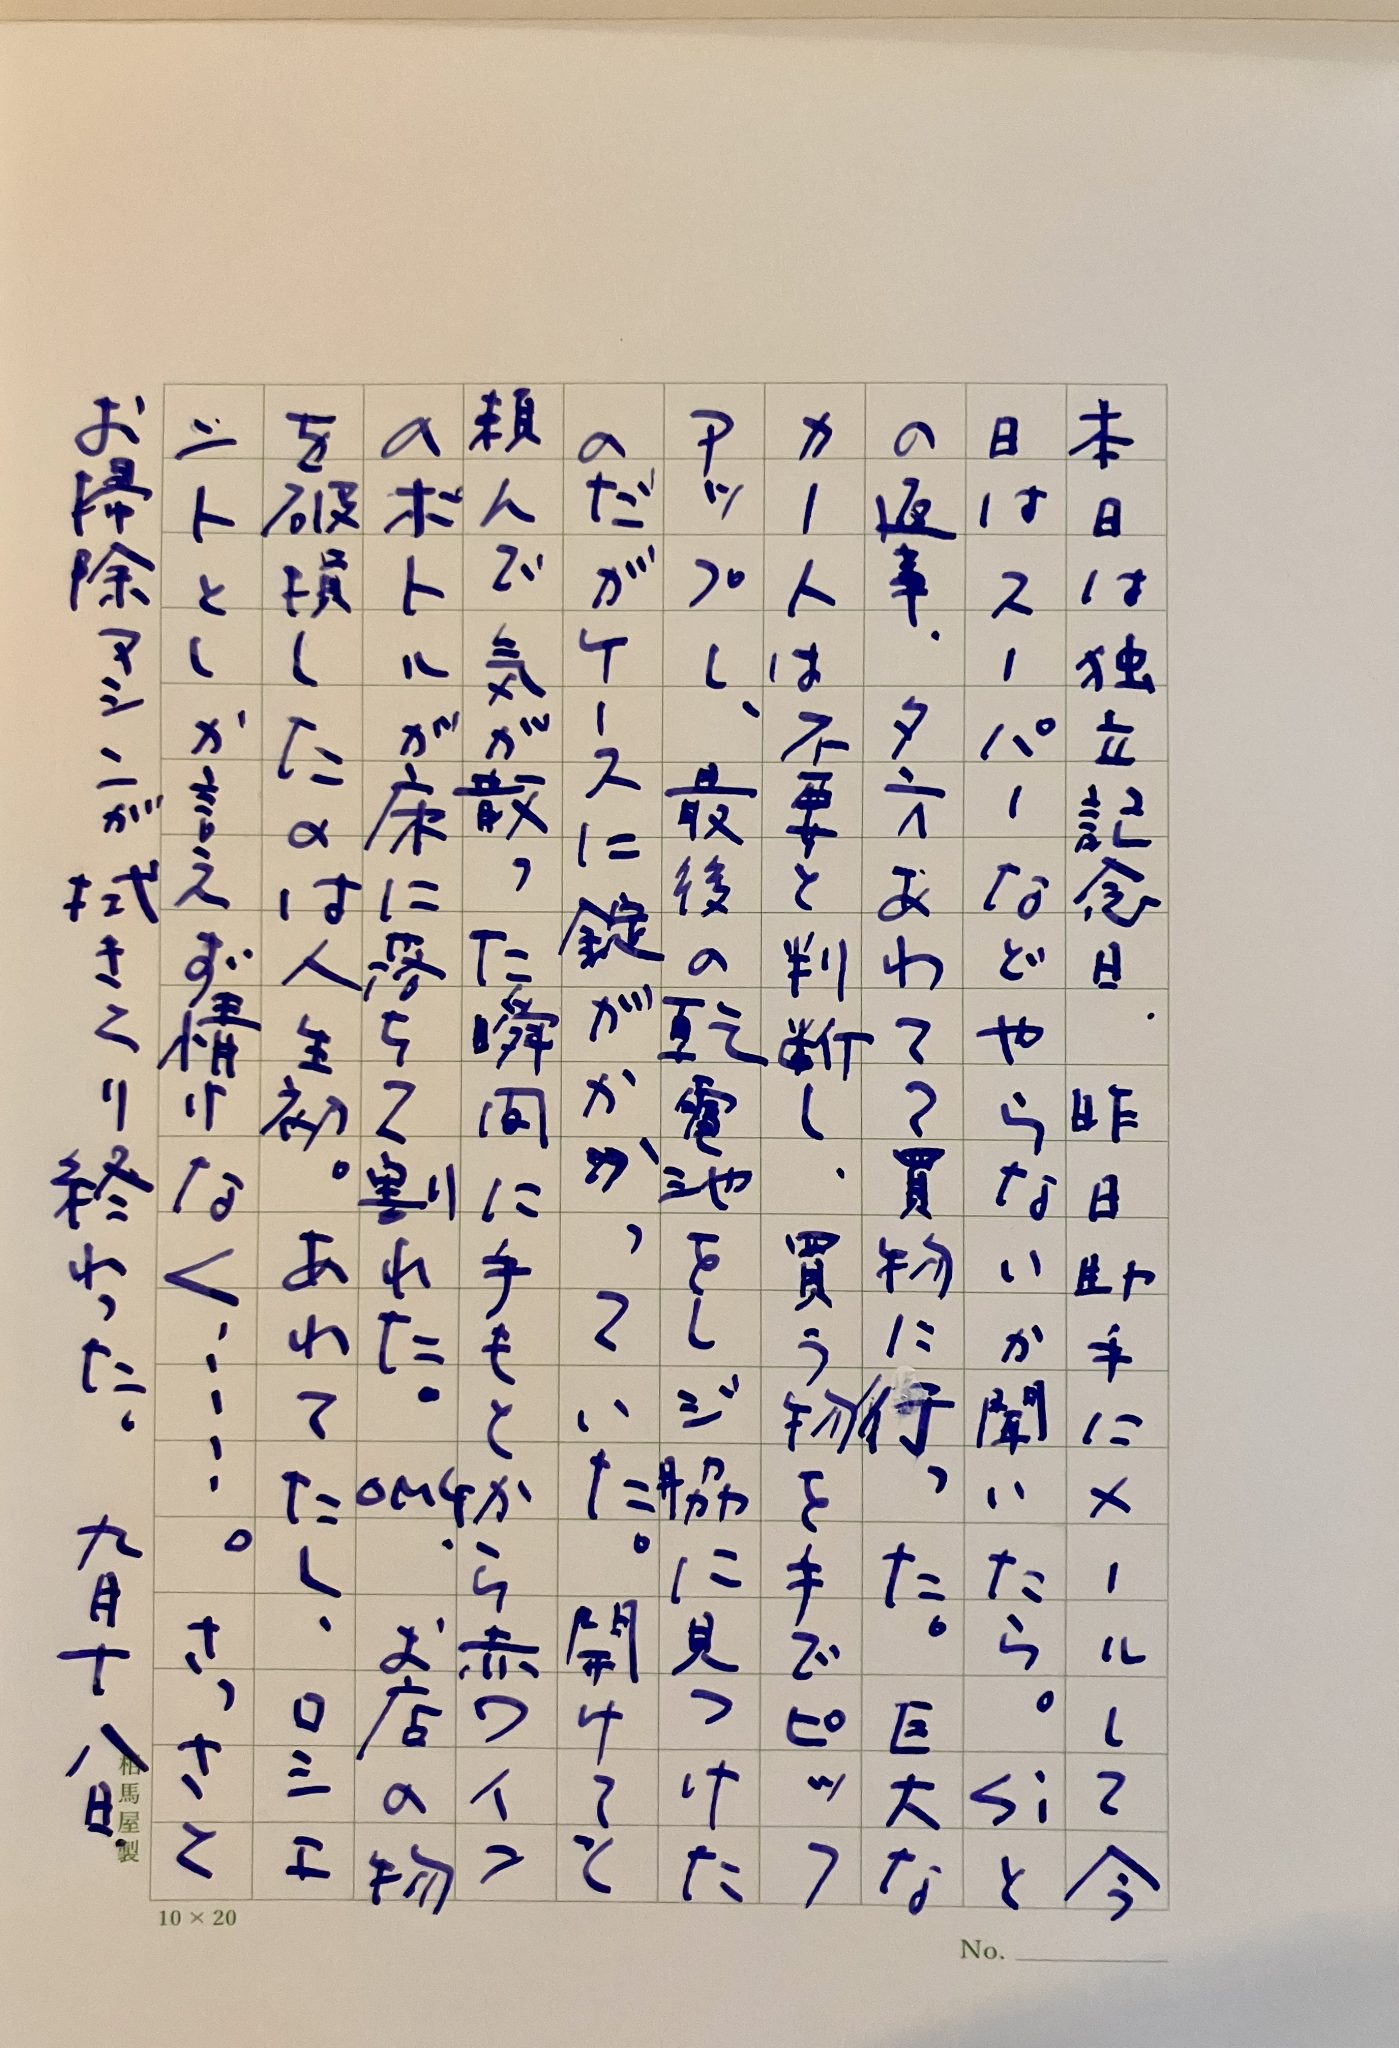 本日は独立記念日．昨日助手にメールして今
日はスーパーなどやらないか聞いたら。Siと
の返事．夕方あわてて買物に行った。巨大な
カート人は不要と判断し．買う物を手でピック
アップし、最後の乾電池をレジ脇に見つけた
のだがケースに錠がかがっていた。開けてと
頼んで気が散った瞬間に手もとから赤ワイン
のボトルが床に落ちて割れた。OMG．お店の物
を破損したのは人生初。あわてたし、ロミエ
ントとしか言えず情けなく……。さっさと
お掃除マシンが拭きとり終わった。 九月十八日．
相馬屋製
10 × 20
No.